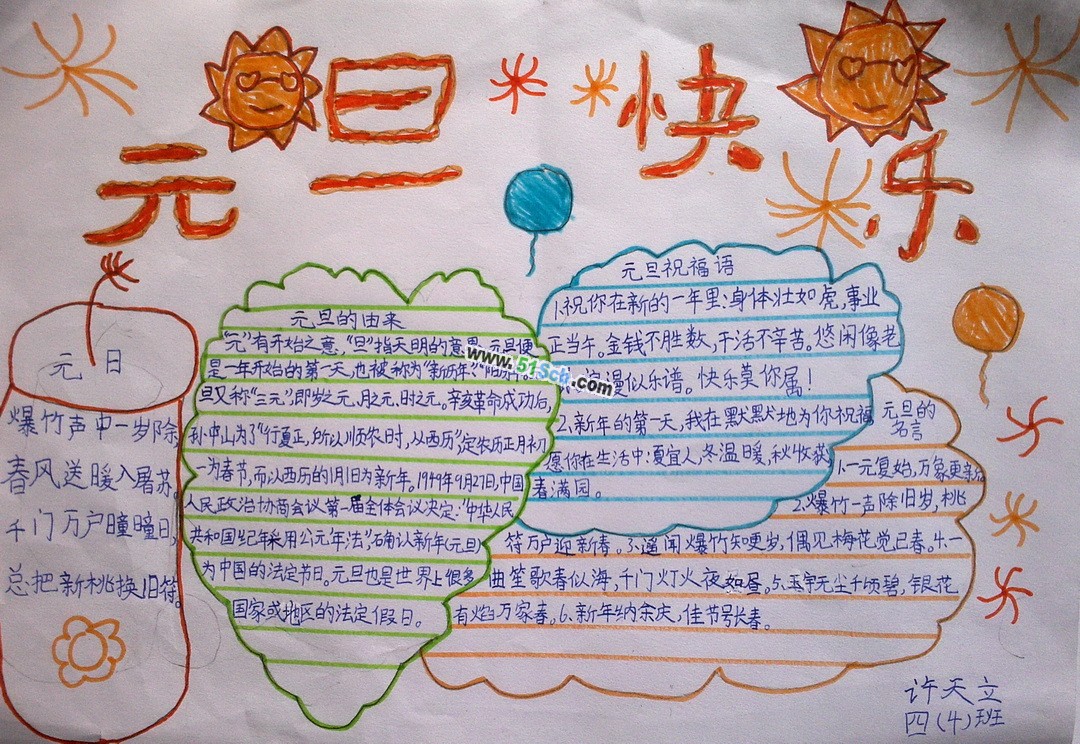 元旦快乐
元日
爆竹声中一岁除
春风送暖入屠苏。
千门万户曈曈日,
总把新桃换旧符。
元旦的由来
"元"有开始之意,"旦"指天明的意思。元旦便
是一年开始的第一天,也被称为"新历年""阳历年"。
旦又称"三元"即岁之元、月之元、时之元。辛亥革命成功后,
孙中山为了"行夏正,所以顺农时,从西历"定农历正月初
一为春节,而以西历的1月1日为新年。1949年9月27日,中国
人民政治协商会议第一届全体会议决定:"中华人民
共和国纪年采用公元年法",确认新年(元旦)
为中国的法定节日。元旦也是世界上很多
国家或地区的法定假日。
元旦祝福语
1.祝你在新的一年里:身体壮如虎,事业
正当午。金钱不胜数,干活不辛苦。悠闲像老
浪漫似乐谱。快乐莫你属!
2、新年的第一天,我在默默地为你祝福
愿你在生活中:夏宜人,冬温暖,秋收获
春满园。
元旦的
名言
1.一元复始,万象更新。
2.爆竹一声除旧岁,桃
符万户迎新春。3.遥闻爆竹知更岁,偶见梅花觉已春。4.一
曲笙歌春似海,千门灯火夜如昼。5.玉宇无尘千顷碧,银花
有焰万家春。6、新年纳余庆,佳节号长春。
许天立
四(4)班
www.51Sch.com